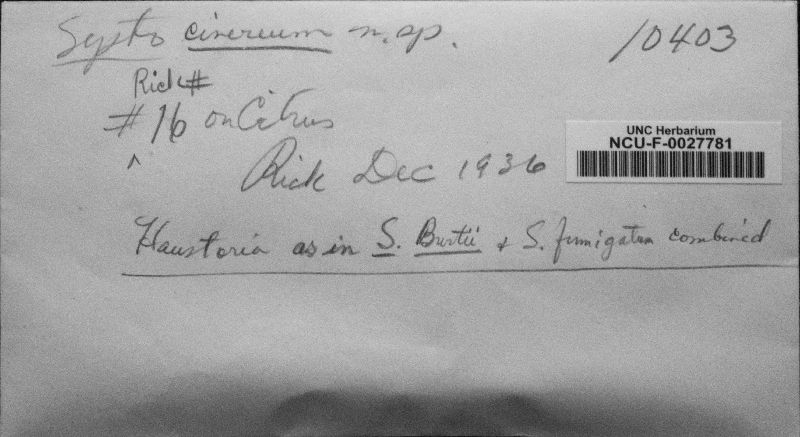 Septo cinereum n.sp. 10403
Rick#
#16 on Citrus
^
UNC Herbarium
NCU-F-0027781
Rick Dec 1936
Haustoria as in S. Burtii & S. fumigatum combined